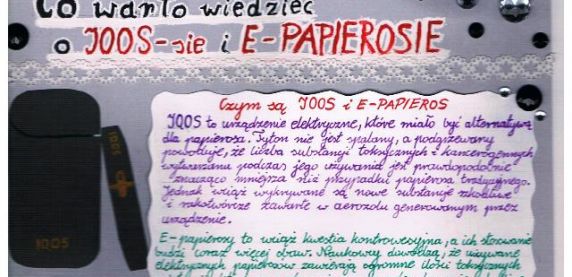 Co warto wiedzieć
o IQOS-sie i E-PAPIEROSIE
Czym są IQOS i E-PAPIEROS
IQOS to urządzenie elektryczne, które miało być alternatywą
dla papierosa. Tytoń nie jest spalany, a podgrzewany
powoduje, że liczba substancji toksycznych i kancerogennych
wytwarzanu podczas jego używania jest prawdopodobnie
znacząco mniejsza niż przypadku papierosa tradycyjnego.
Jednak wciąż wykrywane są nowe substancje szkodliwe
i rakotwórcze zawarte w aerozolu generowanym przez
urządzenie.
E-papierosy to wciąż kwestia kontrowersyjna, a ich stosowanie
budzi coraz więcej obaw. Naukowcy dowodzą, że używane
elektrycznych papierosów zawierają ogromne ilości toksycznych
IQOS
IQOS